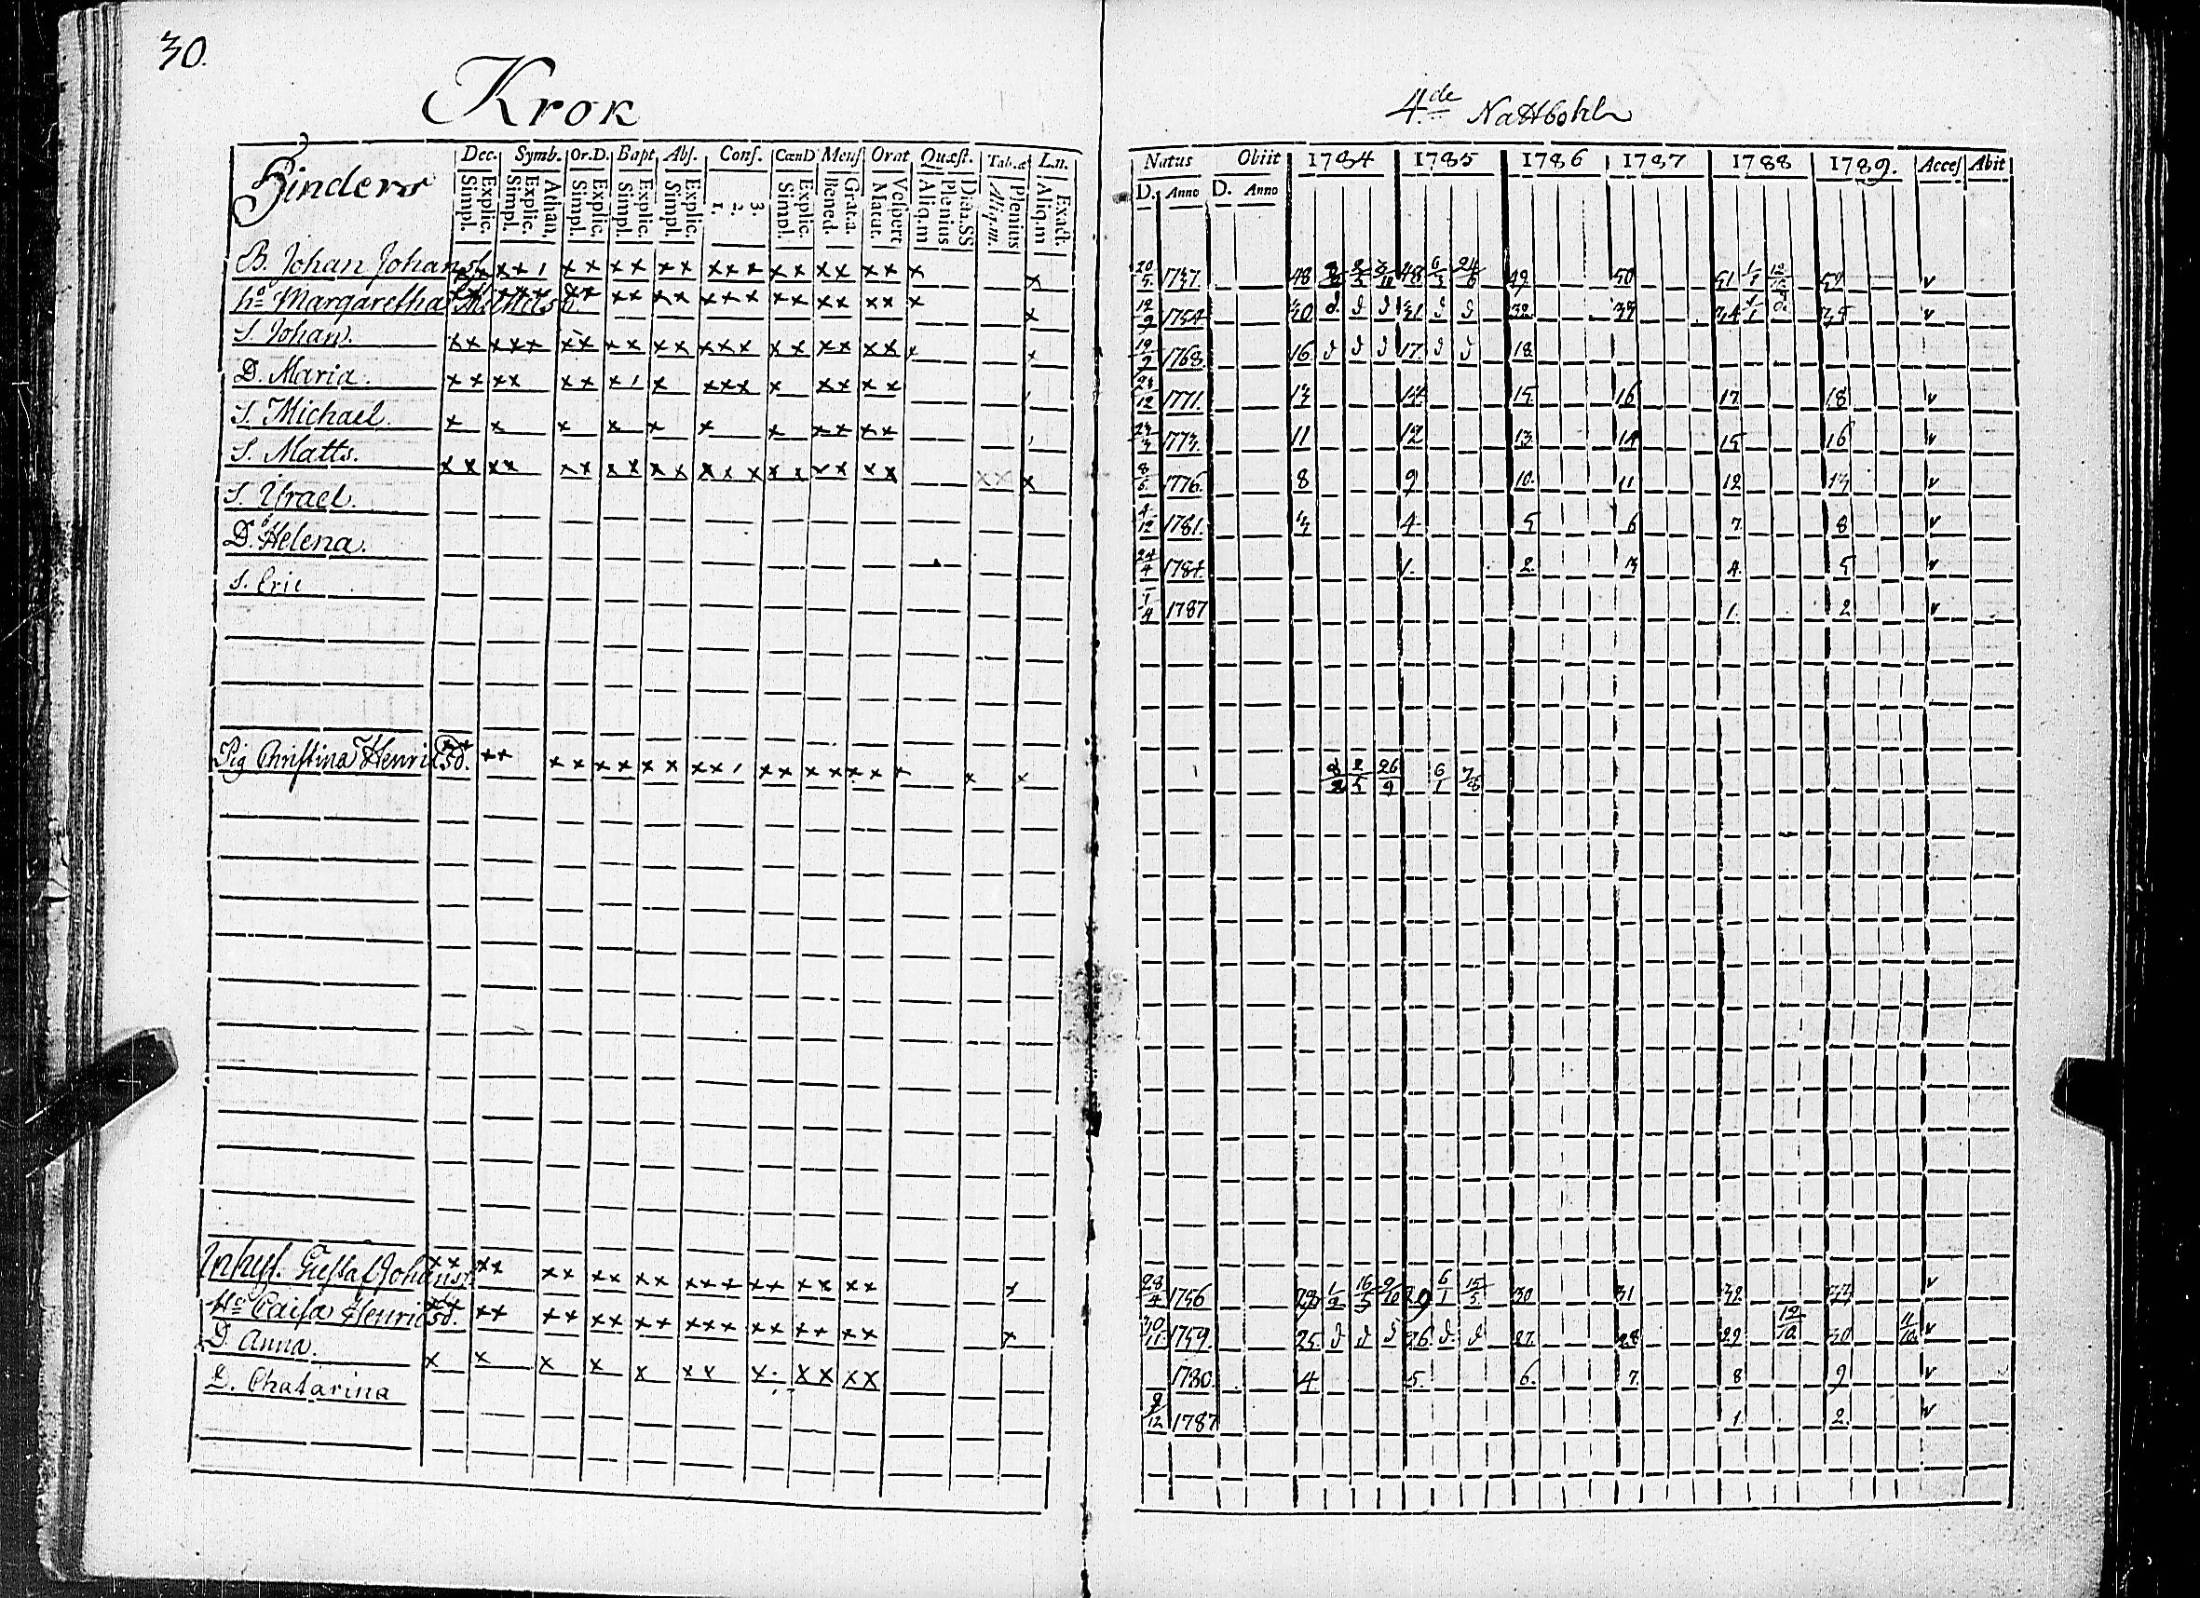 30.
Krok
Hinders
Dec. Symb. Or.D. Bapt Abs. Conf. CœnD Mens Orat Quæst. Tab.æ L.n.
Simpl. Explic. Simpl. Explic. Athan. Simpl. Explic. Simpl. Explic. Simpl. Explic. 1. 2. 3. Simpl. Explic. Bened. Grat.a. Matut. Vespert Aliq.m Plenius Dicta.SS Aliq.m. Plenius Aliq.m Exact.
B. Johan Johans
h:o Margaretha
S. Johan.
D. Maria.
S. Michael.
S. Matts.
S. Ysrael.
D. Helena.
S. Eric
Pig Christina Henricsd.
Inhys. Gustaf Johans
H:o Caisa Henricsd.
D. Anna.
D. Chatarina
4.de Nattbohl
Natus Obiit 1784 1785 1786 1787 1788 1789. Acces Abit
D. Anno D. Anno
20/5 1737. 48 48 49 50 51
12/9 1754 30 31 32
19/9 1768. 16 17. 18.
1771. 13 14 15 16 17. 18
1773. 11 12 13 14 15 16
8/5. 1776. 8 9 10. 11 12 13
4/12 1781. 3 4 5 6 7. 8
24/4 1784. 1. 2. 3 4. 5
1/4 1787 1. 2
2/5 26/9 6/1 7/8
28/4 1756 6/1 30 31 32 33
30/11. 1759. 25. 26 27. 28 29. 12/10 30
1780. 4 5. 6. 7. 8 9
9/12 1787 1. 2.